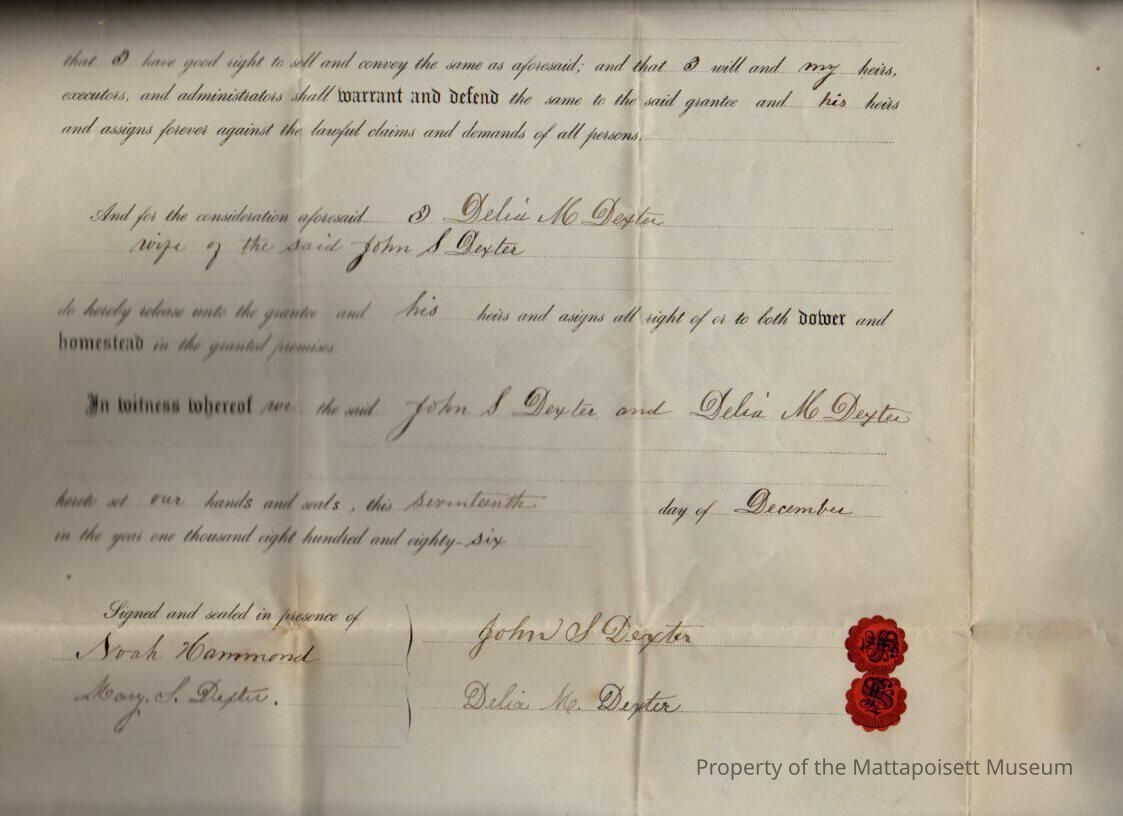 that I have good right to sell and convey the same as aforesaid; and that I will and my heirs,
executors, and administrators shall warrant and defend the same to the said grantee and his heirs
and assigns forever against the lawful claims and demands of all persons.
And for the consideration aforesaid I Delia M Dexter
wife of the said John S Dexter
do hereby release unto the grantee and his heirs and asigns all right of or to both dower and
homestead in the granted premises.
In witness whereof we the said John S Dexter and Delia M Dexter
hereto set our hands and seals, this seventeenth day of December
in the year one thousand eight hundred and eighty-six
Signed and sealed in presence of
Noah Hammond John S Dexter
Mary. S. Dexter. Delia M. Dexter
Property of the Mattapoisett Museum